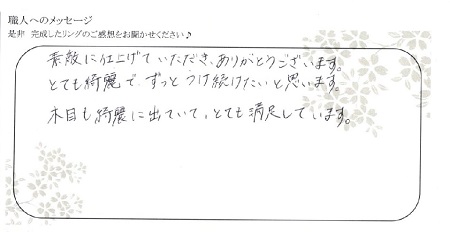 職人へのメッセージ
是非 完成したリングのご感想をお聞かせください♪
素敵に仕上げていただき、ありがとうございます。
とても綺麗で、ずっとつけ続けたいと思います。
木目も綺麗に出ていて、とても満足しています。